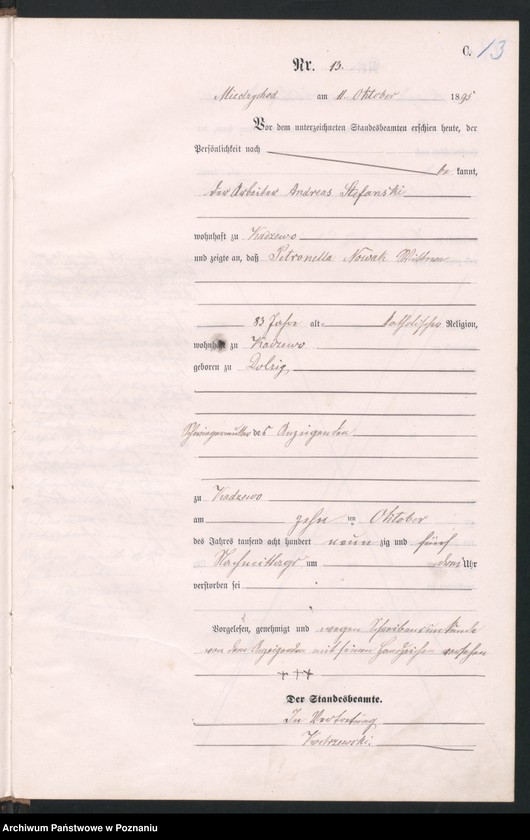 C. 13
Nr. 13.
Miedzychod am 11. Oktober 1895
Vor dem unterzeichneten Standesbeamten erschien heute, der
Persönlichkeit nach
be kannt,
der Arbeiter Andreas Stefanski
wohnhaft zu Kadzewo
und zeigte an, daß Petronella Nowak Wittwe
83 Jahre alt, katholischer Religion,
wohnhaft zu Kadzewo
geboren zu Dolzig,
Schwiegermutter des Anzeigenden
zu Kadzewo
am zehn ten Oktober
des Jahres tausend acht hundert neun zig und fünf
Nachmittags um drei Uhr
verstorben sei
Vorgelesen, genehmigt und wegen Schreibensunkunde
von dem Anzeigenden mit seinem Handzeichen versehen
+++
Der Standesbeamte.
In Vertretung
Archiwum Państwowe w Poznaniu